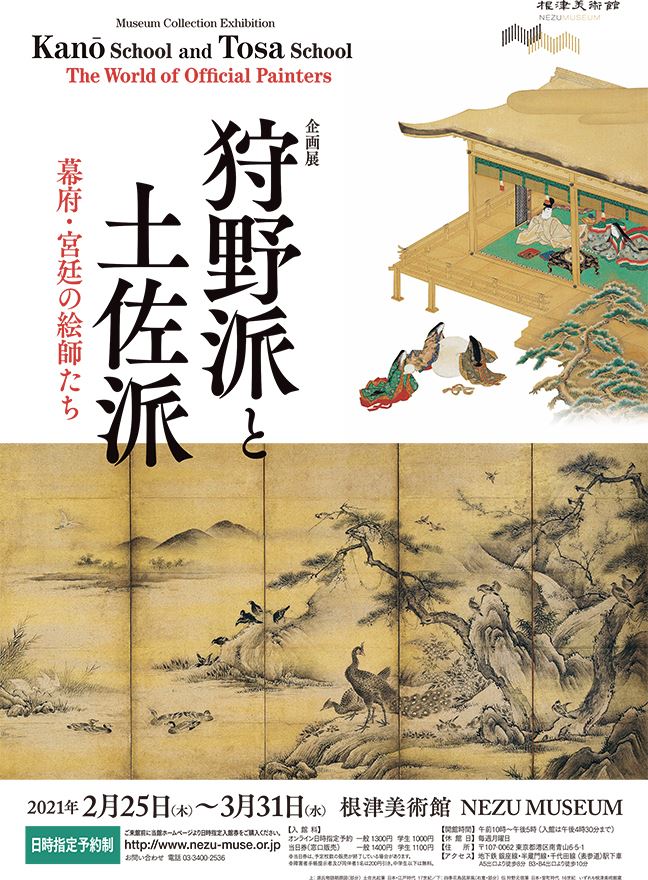 根津美術館
NEZUMUSEUM
Museum Collection Exhibition
Kanō School and Tosa School
The World of Official Painters
企画展
狩野派と
土佐派
幕府・宮廷の絵師たち
2021年 2月25日(木)〜3月31日(水) 根津美術館 NEZU MUSEUM
日時指定予約制
ご来館前に当館ホームページより日時指定入館券をご購入ください。
http://www.nezu-muse.or.jp
お問い合わせ 電話 03-3400-2536
【入 館 料】
オンライン日時指定予約 一般 1300円 学生 1000円
当日券(窓口販売) 一般 1400円 学生 1100円
※当日券は、予定枚数の販売が終了している場合があります。
※障害者手帳提示者および同伴者1名は200円引き、中学生以下は無料。
【開館時間】午前10時〜午後5時(入館は午後4時30分まで)
【休 館 日】毎週月曜日
【住 所】〒107-0062 東京都港区南青山6-5-1
【アクセス】地下鉄 銀座線・半蔵門線・千代田線〈表参道〉駅下車
A5出口より徒歩8分 B3・B4出口より徒歩10分